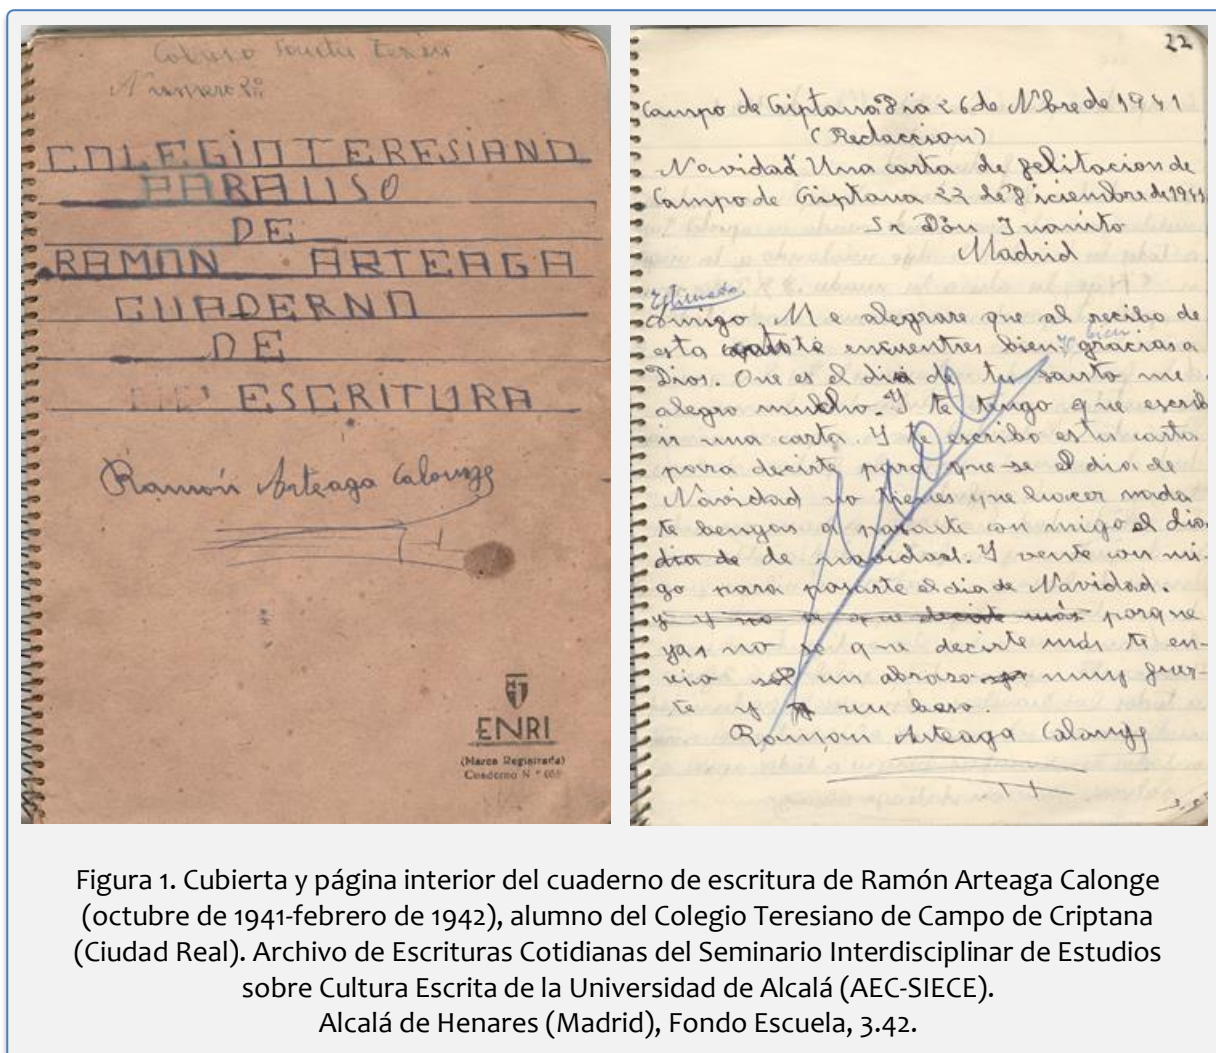 Numero
COLEGIO TERESIANO
PARA USO
DE
RAMON ARTEAGA
CUADERNO
DE
ESCRITURA
Ramón Arteaga Calonge
ENRI
(Marca Registrada)
Cuaderno N.º
22
Campo de Criptana Dia 26 de Nbre de 1941
(Redaccion)
Navidad Una carta de felitacion de
Campo de Criptana 22 de Diciembre de 1941
Sr Don Juanito
Madrid
Estimado
Amigo, Me alegrare que al recibo de
esta te encuentres bien y bien gracias a
Dios. One es el dia de tu santo me
alegro mucho. Y te tengo que escrib
ir una carta. Y te escribo esta carta
para decirte para que se el dia de
Navidad no tienes que hacer nada
te bengas a pasarte con migo el dia
dia de de navidad. Y vente con mi-
go para pasarte el dia de Navidad.
y y no se que decirte más porque
yas no se que decirte más te en-
vio un abraso muy fuer-
te y un beso.
Ramón Arteaga Calonge
Figura 1. Cubierta y página interior del cuaderno de escritura de Ramón Arteaga Calonge
(octubre de 1941-febrero de 1942), alumno del Colegio Teresiano de Campo de Criptana
(Ciudad Real). Archivo de Escrituras Cotidianas del Seminario Interdisciplinar de Estudios
sobre Cultura Escrita de la Universidad de Alcalá (AEC-SIECE).
Alcalá de Henares (Madrid), Fondo Escuela, 3.42.